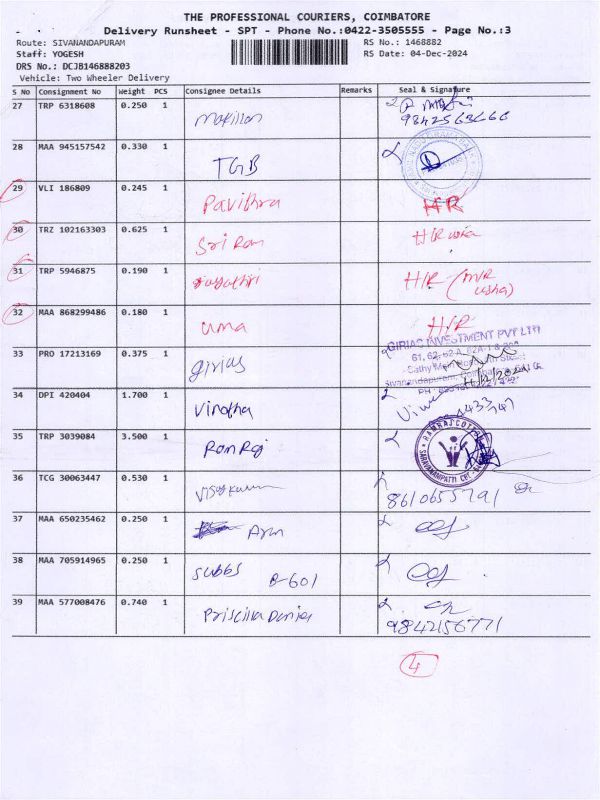 THE PROFESSIONAL COURIERS, COIMBATORE
Delivery Runsheet - SPT - Phone No.:0422-3505555 - Page No.:3
Route: SIVANANDAPURAM RS No.: 1468882
Staff: YOGESH RS Date: 04-Dec-2024
DRS No.: DCJB146888203
Vehicle: Two Wheeler Delivery
S No Consignment No Weight PCS Consignee Details Remarks Seal & Signature
27 TRP 6318608 0.250 1
28 MAA 945157542 0.330 1 TGB
29 VLI 186809 0.245 1 Pavithra HR
30 TRZ 102163303 0.625 1 Sri Ram H/R
31 TRP 5946875 0.190 1 H/R (M/R
usha)
32 MAA 868299486 0.180 1 uma H/R
GIRIAS INVESTMENT PVT LTD
33 PRO 17213169 0.375 1 girias
34 DPI 420404 1.700 1 Vinotha
35 TRP 3039084 3.500 1 RamRaj
RAMRAJ COTTON
SARAVANAMPATTI CBT
36 TCG 30063447 0.530 1 Vijaykumar 8610655791
37 MAA 650235462 0.250 1 Arun
38 MAA 705914965 0.250 1 Subbs B-601
39 MAA 577008476 0.740 1 Priscilla Daniel 9842156771
4